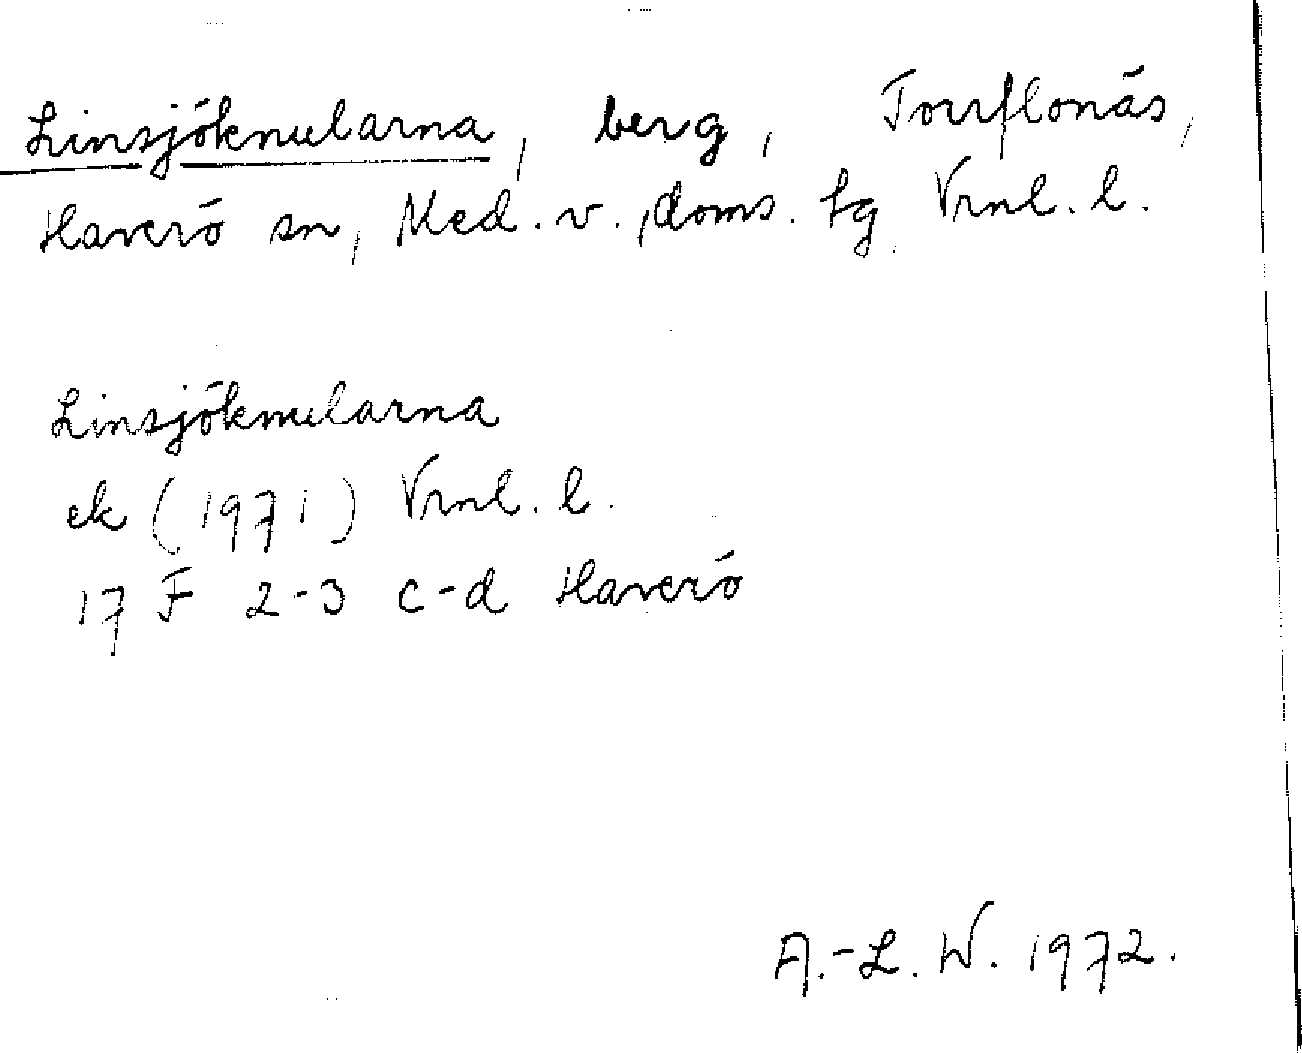 Linsjöknularna, berg, Torrflonäs,
Haverö sn, Med. v., doms. tg Vrnl. l.
Linsjöknularna
ek (1971) Vrnl. l.
17 F 2-3 c-d Haverö
A.-L. W. 1972.